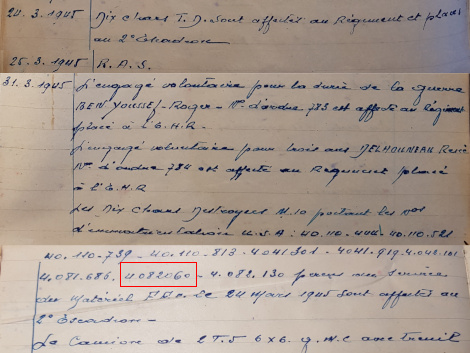 24.3.1945 Dix chars T.D. sont affectés au Régiment et placés
au 2° Escadron
25.3.1945 R.A.S.
31.3.1945 L'engagé volontaire pour la durée de la guerre
BEN YOUSSEF-Roger - N° d'ordre 783 est affecté au Régiment
placé à l'E.H.R -
L'engagé volontaire pour trois ans DELHOUNEAU René
N° d'ordre 784 est affecté au Régiment placé
à l'E.H.R
Les Dix Chars Destroyers M.10 portant les nos
d'immatriculation U.S.A : 40.110.404 - 40.110.521
40.110-739 - 40.110-813 - 4.041301 - 4041.919 - 4.048.101
4.081.686. 4.082060 - 4.082.130 perçus au service
du Matériel le 24 Mars 1945 sont affectés au
2° Escadron -
Le Camion de 2T.5 6x6. G.M.C avec treuil